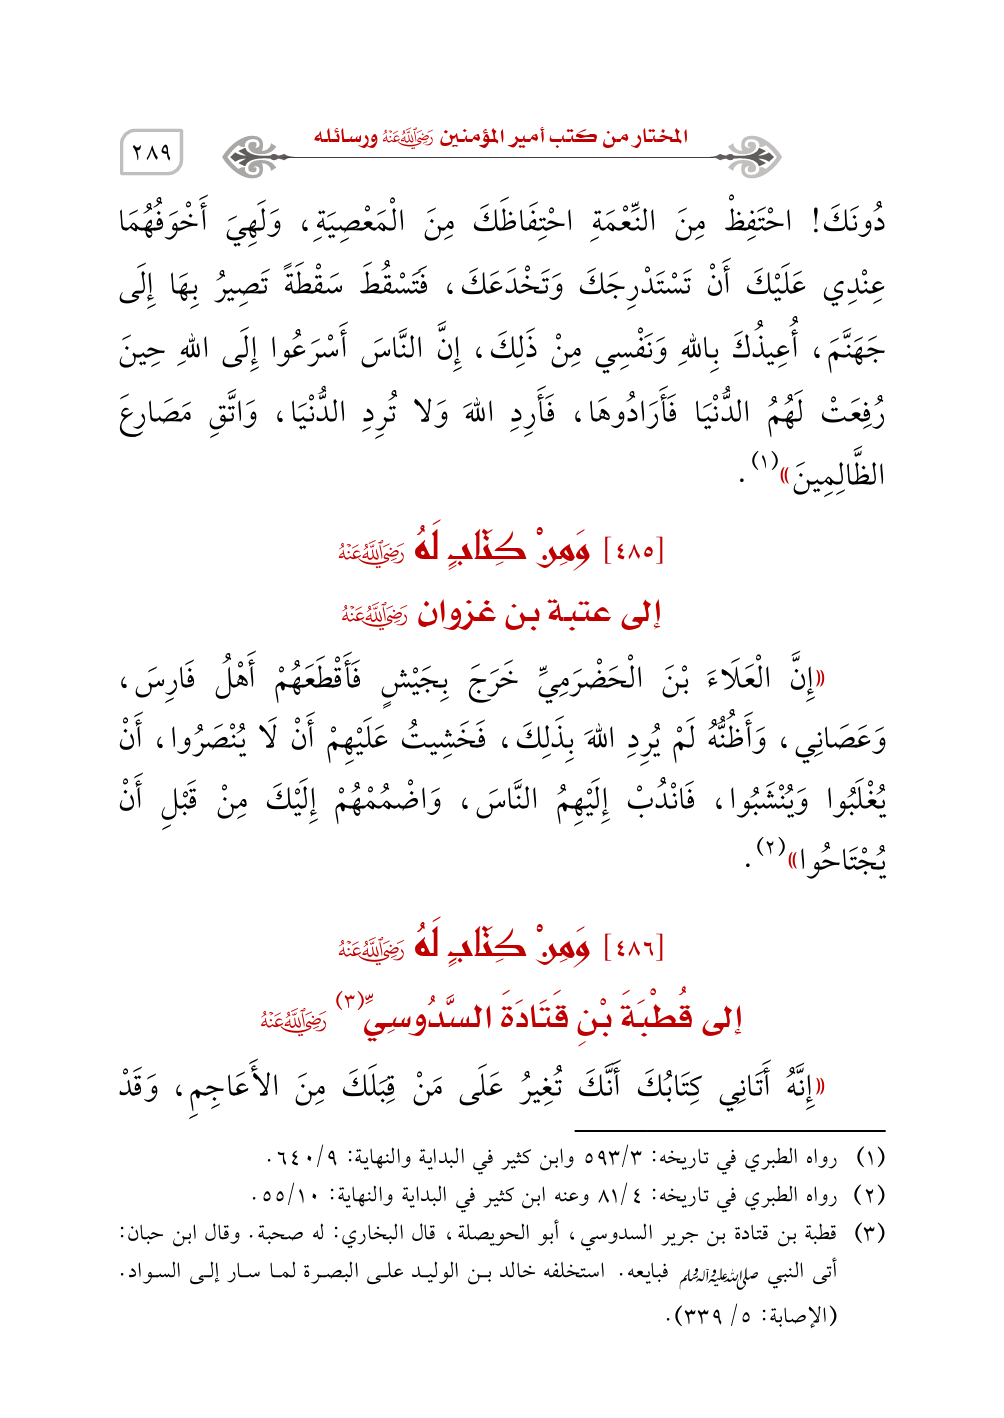 المختار من كتب أمير المؤمنين رَضِيَ اللَّهُ عَنْهُ ورسائله
٢٨٩
دُونَكَ! احْتَفِظْ مِنَ النِّعْمَةِ احْتِفَاظَكَ مِنَ الْمَعْصِيَةِ، وَلَهِيَ أَخْوَفُهُمَا
عِنْدِي عَلَيْكَ أَنْ تَسْتَدْرِجَكَ وَتَخْدَعَكَ، فَتَسْقُطَ سَقْطَةً تَصِيرُ بِهَا إِلَى
جَهَنَّمَ، أُعِيذُكَ بِاللهِ وَنَفْسِي مِنْ ذَلِكَ، إِنَّ النَّاسَ أَسْرَعُوا إِلَى اللهِ حِينَ
رُفِعَتْ لَهُمُ الدُّنْيَا فَأَرَادُوهَا، فَأَرِدِ اللهَ وَلا تُرِدِ الدُّنْيَا، وَاتَّقِ مَصَارِعَ
الظَّالِمِينَ»(١).
[٤٨٥] وَمِنْ كِتَابٍ لَهُ رَضِيَ اللَّهُ عَنْهُ
إلى عتبة بن غزوان رَضِيَ اللَّهُ عَنْهُ
«إِنَّ الْعَلَاءَ بْنَ الْحَضْرَمِيِّ خَرَجَ بِجَيْشٍ فَأَقْطَعَهُمْ أَهْلُ فَارِسَ،
وَعَصَانِي، وَأَظُنُّهُ لَمْ يُرِدِ اللهَ بِذَلِكَ، فَخَشِيتُ عَلَيْهِمْ أَنْ لَا يُنْصَرُوا، أَنْ
يُغْلَبُوا وَيُنْشَبُوا، فَانْدُبْ إِلَيْهِمُ النَّاسَ، وَاضْمُمْهُمْ إِلَيْكَ مِنْ قَبْلِ أَنْ
يُجْتَاحُوا»(٢).
[٤٨٦] وَمِنْ كِتَابٍ لَهُ رَضِيَ اللَّهُ عَنْهُ
إلى قُطْبَةَ بْنِ قَتَادَةَ السَّدُوسِيِّ(٣) رَضِيَ اللَّهُ عَنْهُ
«إِنَّهُ أَتَانِي كِتَابُكَ أَنَّكَ تُغِيرُ عَلَى مَنْ قِبَلَكَ مِنَ الأَعَاجِمِ، وَقَدْ
(١) رواه الطبري في تاريخه: ٥٩٣/٣ وابن كثير في البداية والنهاية: ٦٤٠/٩.
(٢) رواه الطبري في تاريخه: ٨١/٤ وعنه ابن كثير في البداية والنهاية: ٥٥/١٠.
(٣) قطبة بن قتادة بن جرير السدوسي، أبو الحويصلة، قال البخاري: له صحبة. وقال ابن حبان:
أتى النبي صلى الله عليه وآله وسلم فبايعه. استخلفه خالد بـن الوليـد علـى البصـرة لمـا سـار إلـى السـواد.
(الإصابة: ٥/ ٣٣٩).